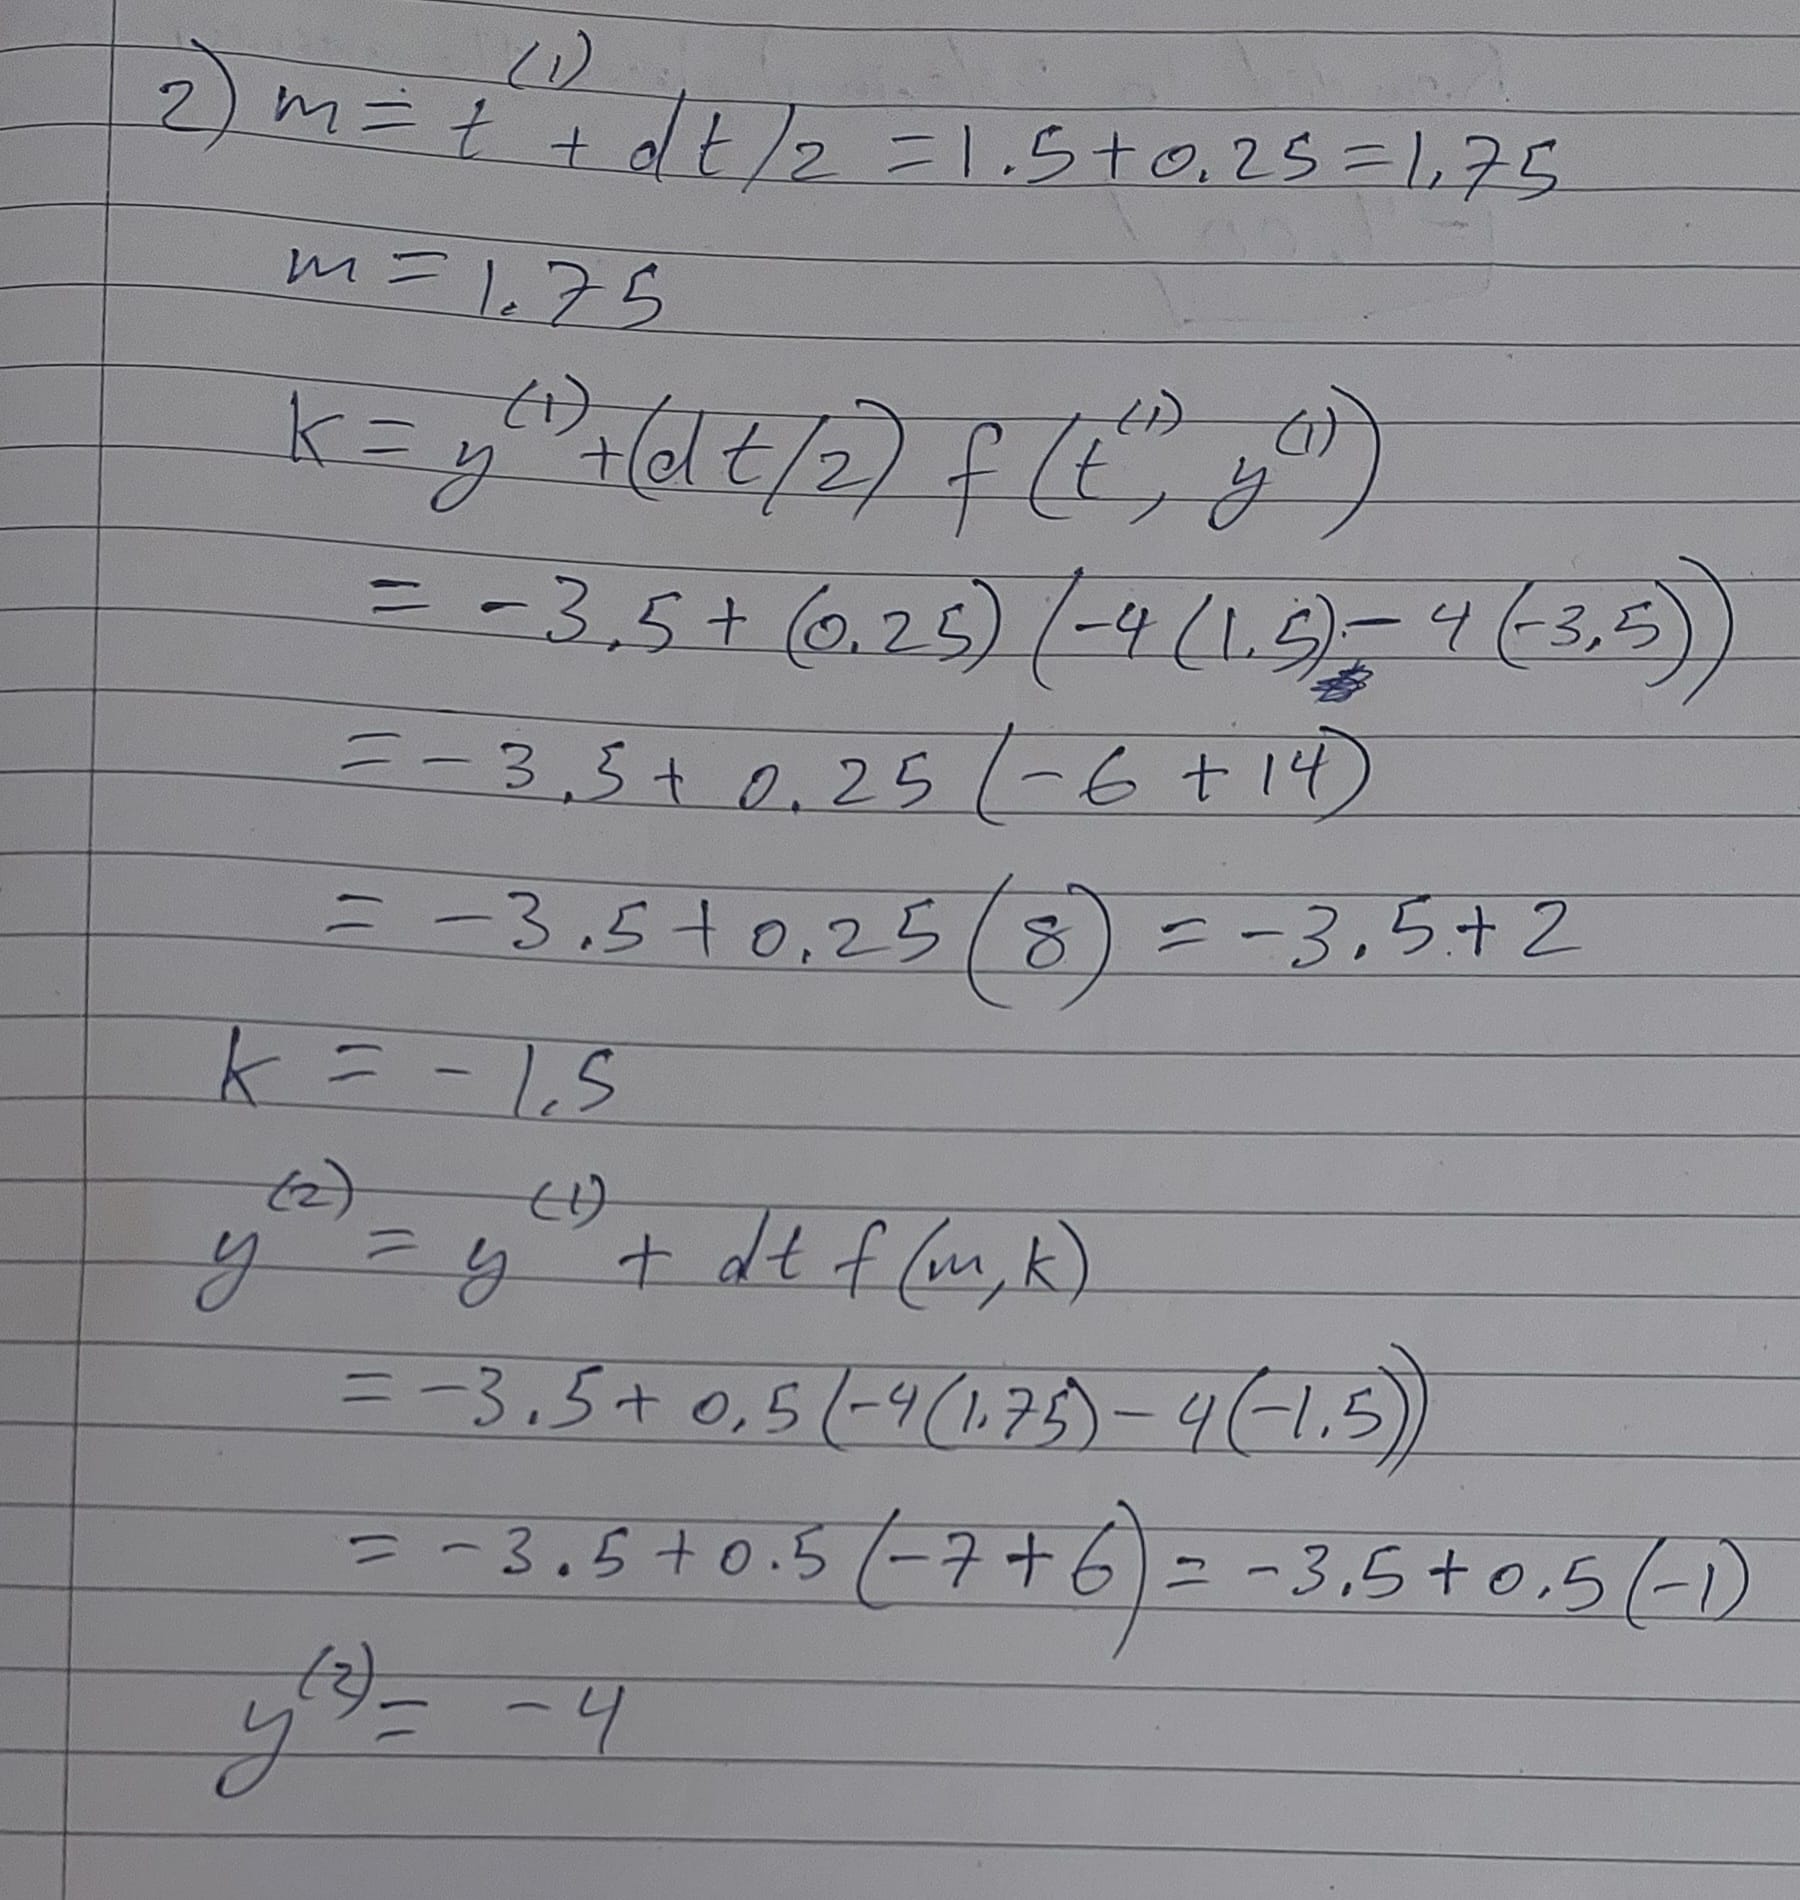 2) m = t^(1) + dt/2 = 1.5 + 0.25 = 1.75
m = 1.75
k = y^(1) + (dt/2) f(t^(1), y^(1))
= -3.5 + (0.25) (-4(1.5) - 4(-3.5))
= -3.5 + 0.25 (-6 + 14)
= -3.5 + 0.25 (8) = -3.5 + 2
k = -1.5
y^(2) = y^(1) + dt f(m, k)
= -3.5 + 0.5 (-4(1.75) - 4(-1.5))
= -3.5 + 0.5 (-7 + 6) = -3.5 + 0.5 (-1)
y^(2) = -4